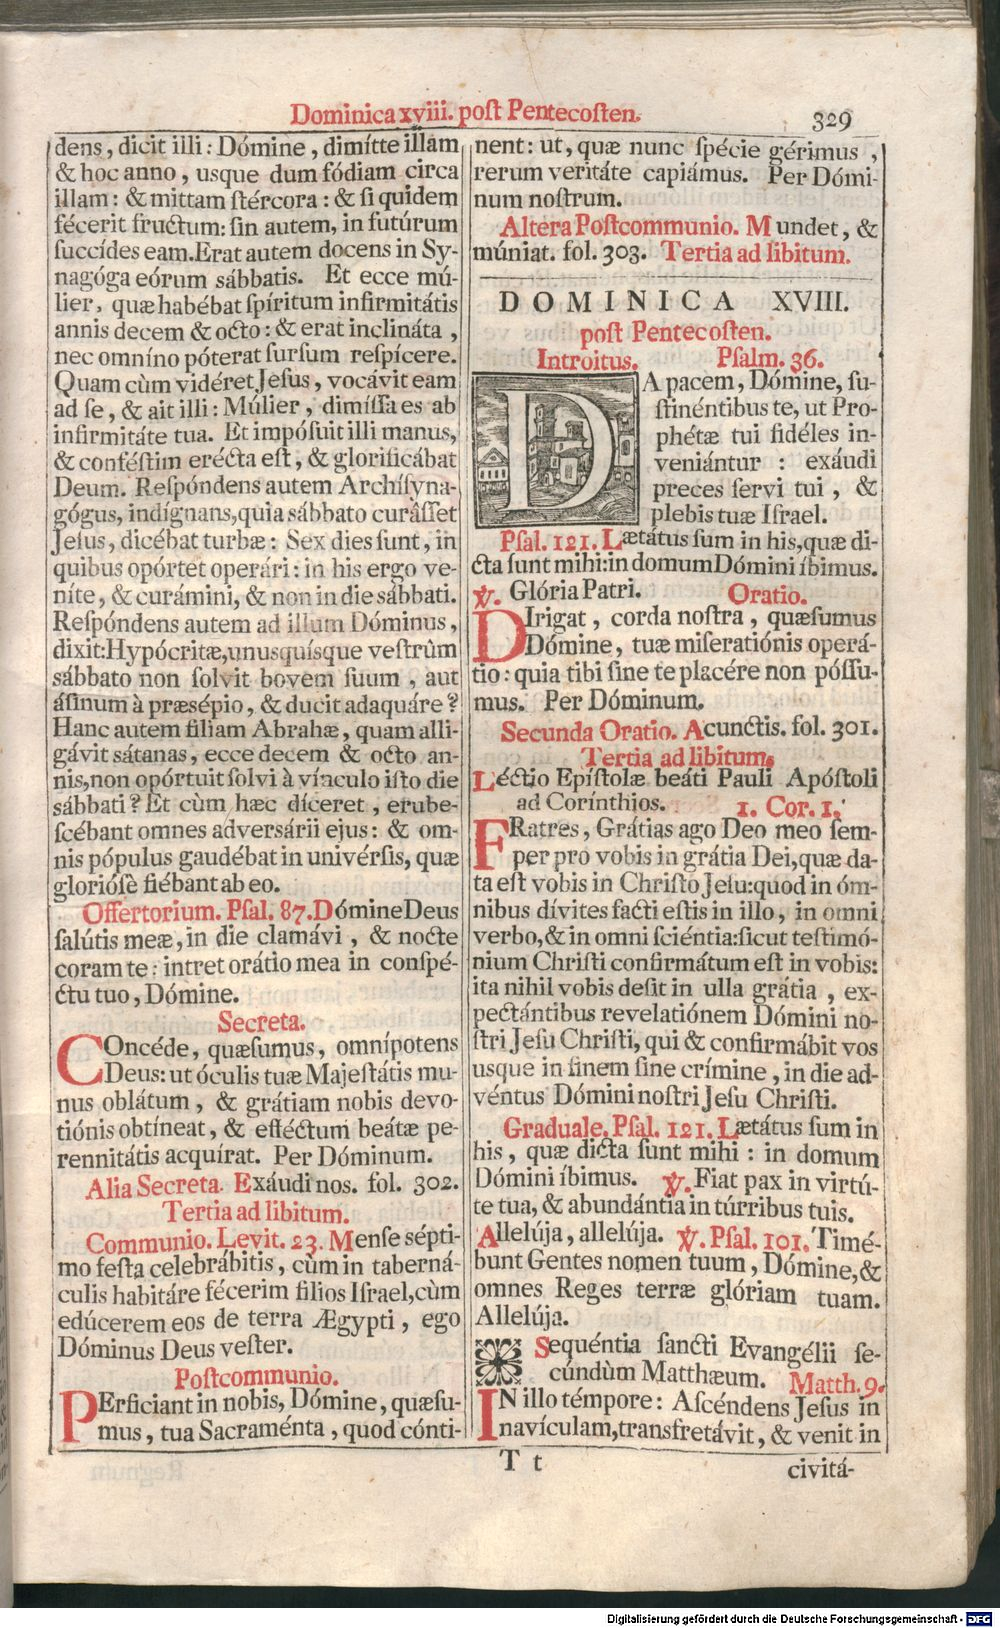 Dominica xviii. post Pentecosten.
329
dens, dicit illi: Dómine, dimítte illam
& hoc anno, usque dum fódiam circa
illam: & mittam stércora: & si quidem
fécerit fructum: sin autem, in futúrum
succídes eam. Erat autem docens in Sy-
nagóga eórum sábbatis. Et ecce mú-
lier, quæ habébat spíritum infirmitátis
annis decem & octo: & erat inclináta,
nec omníno póterat sursum respícere.
Quam cùm vidéret Jesus, vocávit eam
ad se, & ait illi: Múlier, dimíssa es ab
infirmitáte tua. Et impósuit illi manus,
& conféstim erécta est, & glorificábat
Deum. Respóndens autem Archisyna-
gógus, indígnans, quia sábbato curâsset
Jesus, dicébat turbæ: Sex dies sunt, in
quibus opórtet operári: in his ergo ve-
níte, & curámini, & non in die sábbati.
Respóndens autem ad illum Dóminus,
dixit: Hypócritæ, unusquísque vestrûm
sábbato non solvit bovem suum, aut
ásinum à præsépio, & ducit adaquáre?
Hanc autem filiam Abrahæ, quam alli-
gávit sátanas, ecce decem & octo an-
nis, non opórtuit solvi à vínculo isto die
sábbati? Et cùm hæc díceret, erube-
scébant omnes adversárii ejus: & om-
nis pópulus gaudébat in univérsis, quæ
gloriósè fiébant ab eo.
Offertorium. Psal. 87. Dómine Deus
salútis meæ, in die clamávi, & nocte
coram te: intret orátio mea in conspé-
ctu tuo, Dómine.
Secreta.
COncéde, quæsumus, omnípotens
Deus: ut óculis tuæ Majestátis mu-
nus oblátum, & grátiam nobis devo-
tiónis obtíneat, & efféctum beátæ pe-
rennitátis acquírat. Per Dóminum.
Alia Secreta. Exáudi nos. fol. 302.
Tertia ad libitum.
Communio. Levit. 23. Mense sépti-
mo festa celebrábitis, cùm in taberná-
culis habitáre fécerim filios Israel, cùm
edúcerem eos de terra Ægypti, ego
Dóminus Deus vester.
Postcommunio.
PErficiant in nobis, Dómine, quæsu-
mus, tua Sacraménta, quod cónti-
nent: ut, quæ nunc spécie gérimus,
rerum veritáte capiámus. Per Dómi-
num nostrum.
Altera Postcommunio. Mundet, &
múniat. fol. 303. Tertia ad libitum.
DOMINICA XVIII.
post Pentecosten.
Introitus. Psalm. 36.
DA pacem, Dómine, su-
stinéntibus te, ut Pro-
phétæ tui fidéles in-
veniántur: exáudi
preces servi tui, &
plebis tuæ Israel.
Psal. 121. Lætátus sum in his, quæ di-
cta sunt mihi: in domum Dómini íbimus.
℣. Glória Patri. Oratio.
DIrigat, corda nostra, quæsumus
Dómine, tuæ miseratiónis operá-
tio: quia tibi sine te placére non póssu-
mus. Per Dóminum.
Secunda Oratio. Acunctis. fol. 301.
Tertia ad libitum.
Léctio Epístolæ beáti Pauli Apóstoli
ad Corínthios. 1. Cor. 1.
FRatres, Grátias ago Deo meo sem-
per pro vobis in grátia Dei, quæ da-
ta est vobis in Christo Jesu: quod in óm-
nibus dívites facti estis in illo, in omni
verbo, & in omni sciéntia: sicut testimó-
nium Christi confirmátum est in vobis:
ita nihil vobis desit in ulla grátia, ex-
pectántibus revelatiónem Dómini no-
stri Jesu Christi, qui & confirmábit vos
usque in finem sine crímine, in die ad-
véntus Dómini nostri Jesu Christi.
Graduale. Psal. 121. Lætátus sum in
his, quæ dicta sunt mihi: in domum
Dómini íbimus. ℣. Fiat pax in virtú-
te tua, & abundántia in túrribus tuis.
Allelúja, allelúja. ℣. Psal. 101. Timé-
bunt Gentes nomen tuum, Dómine, &
omnes Reges terræ glóriam tuam.
Allelúja.
Sequéntia sancti Evangélii se-
cúndùm Matthæum. Matth. 9.
IN illo témpore: Ascéndens Jesus in
navículam, transfretávit, & venit in
T t
civitá-
Digitalisierung gefördert durch die Deutsche Forschungsgemeinschaft - DFG